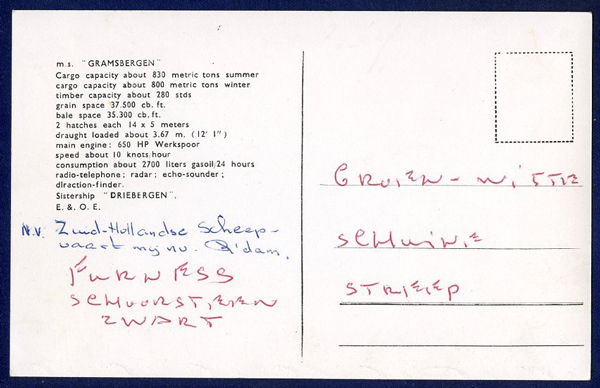 m.s. "GRAMSBERGEN"
Cargo capacity about 830 metric tons summer
cargo capacity about 800 metric tons winter
timber capacity about 280 stds
grain space 37.500 cb. ft.
bale space 35.300 cb. ft.
2 hatches each 14 x 5 meters
draught loaded about 3.67 m. (12' 1")
main engine: 650 HP Werkspoor
speed about 10 knots/hour
consumption about 2700 liters gasoil/24 hours
radio-telephone; radar; echo-sounder;
direction-finder.
Sistership "DRIEBERGEN".
E. & O. E.
N.V. Zuid-Hollandse Scheep-
vaart mij nv. R'dam.
FURNESS
SCHOORSTEEN
ZWART
GROEN - WITTE
SCHUINE
STREEP